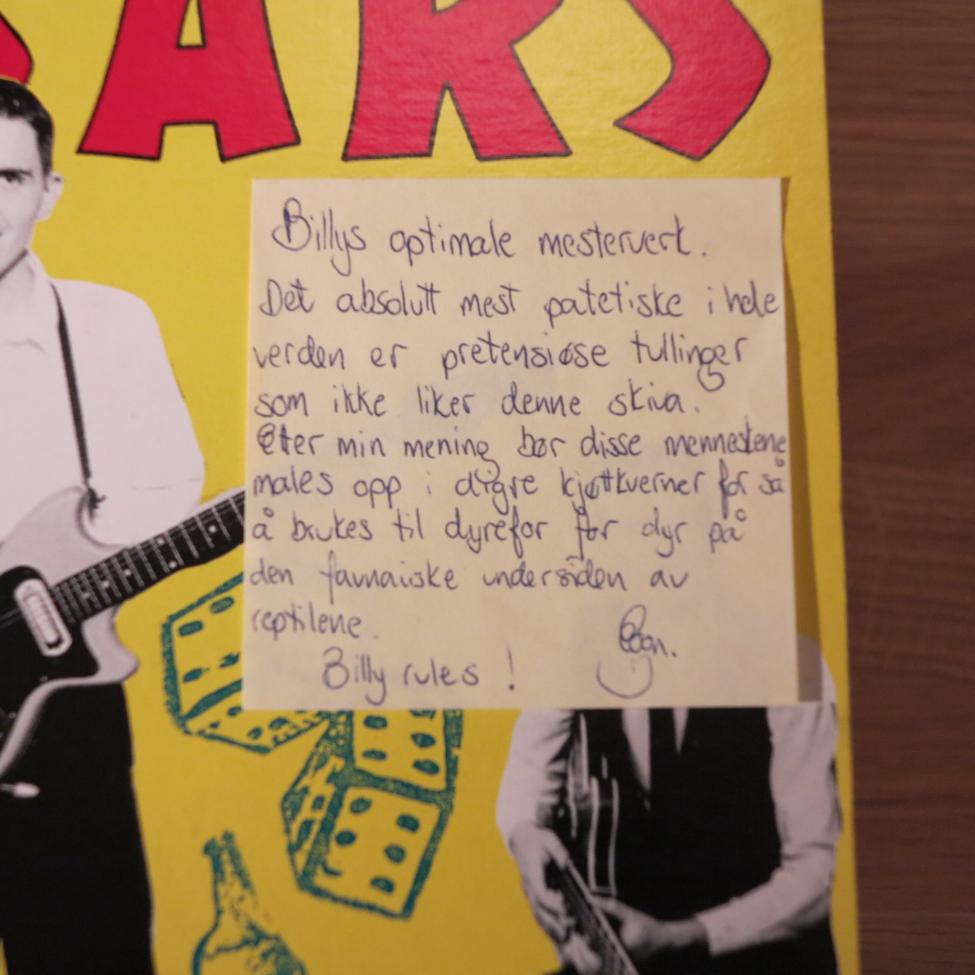 ARS
Billys optimale mesterverk.
Det absolutt mest patetiske i hele
verden er pretensiøse tullinger
som ikke liker denne skiva.
Etter min mening bør disse menneskene
males opp i digre kjøttkverner for så
å brukes til dyrefor for dyr på
den faunaiske undersiden av
reptilene.
Billy rules !